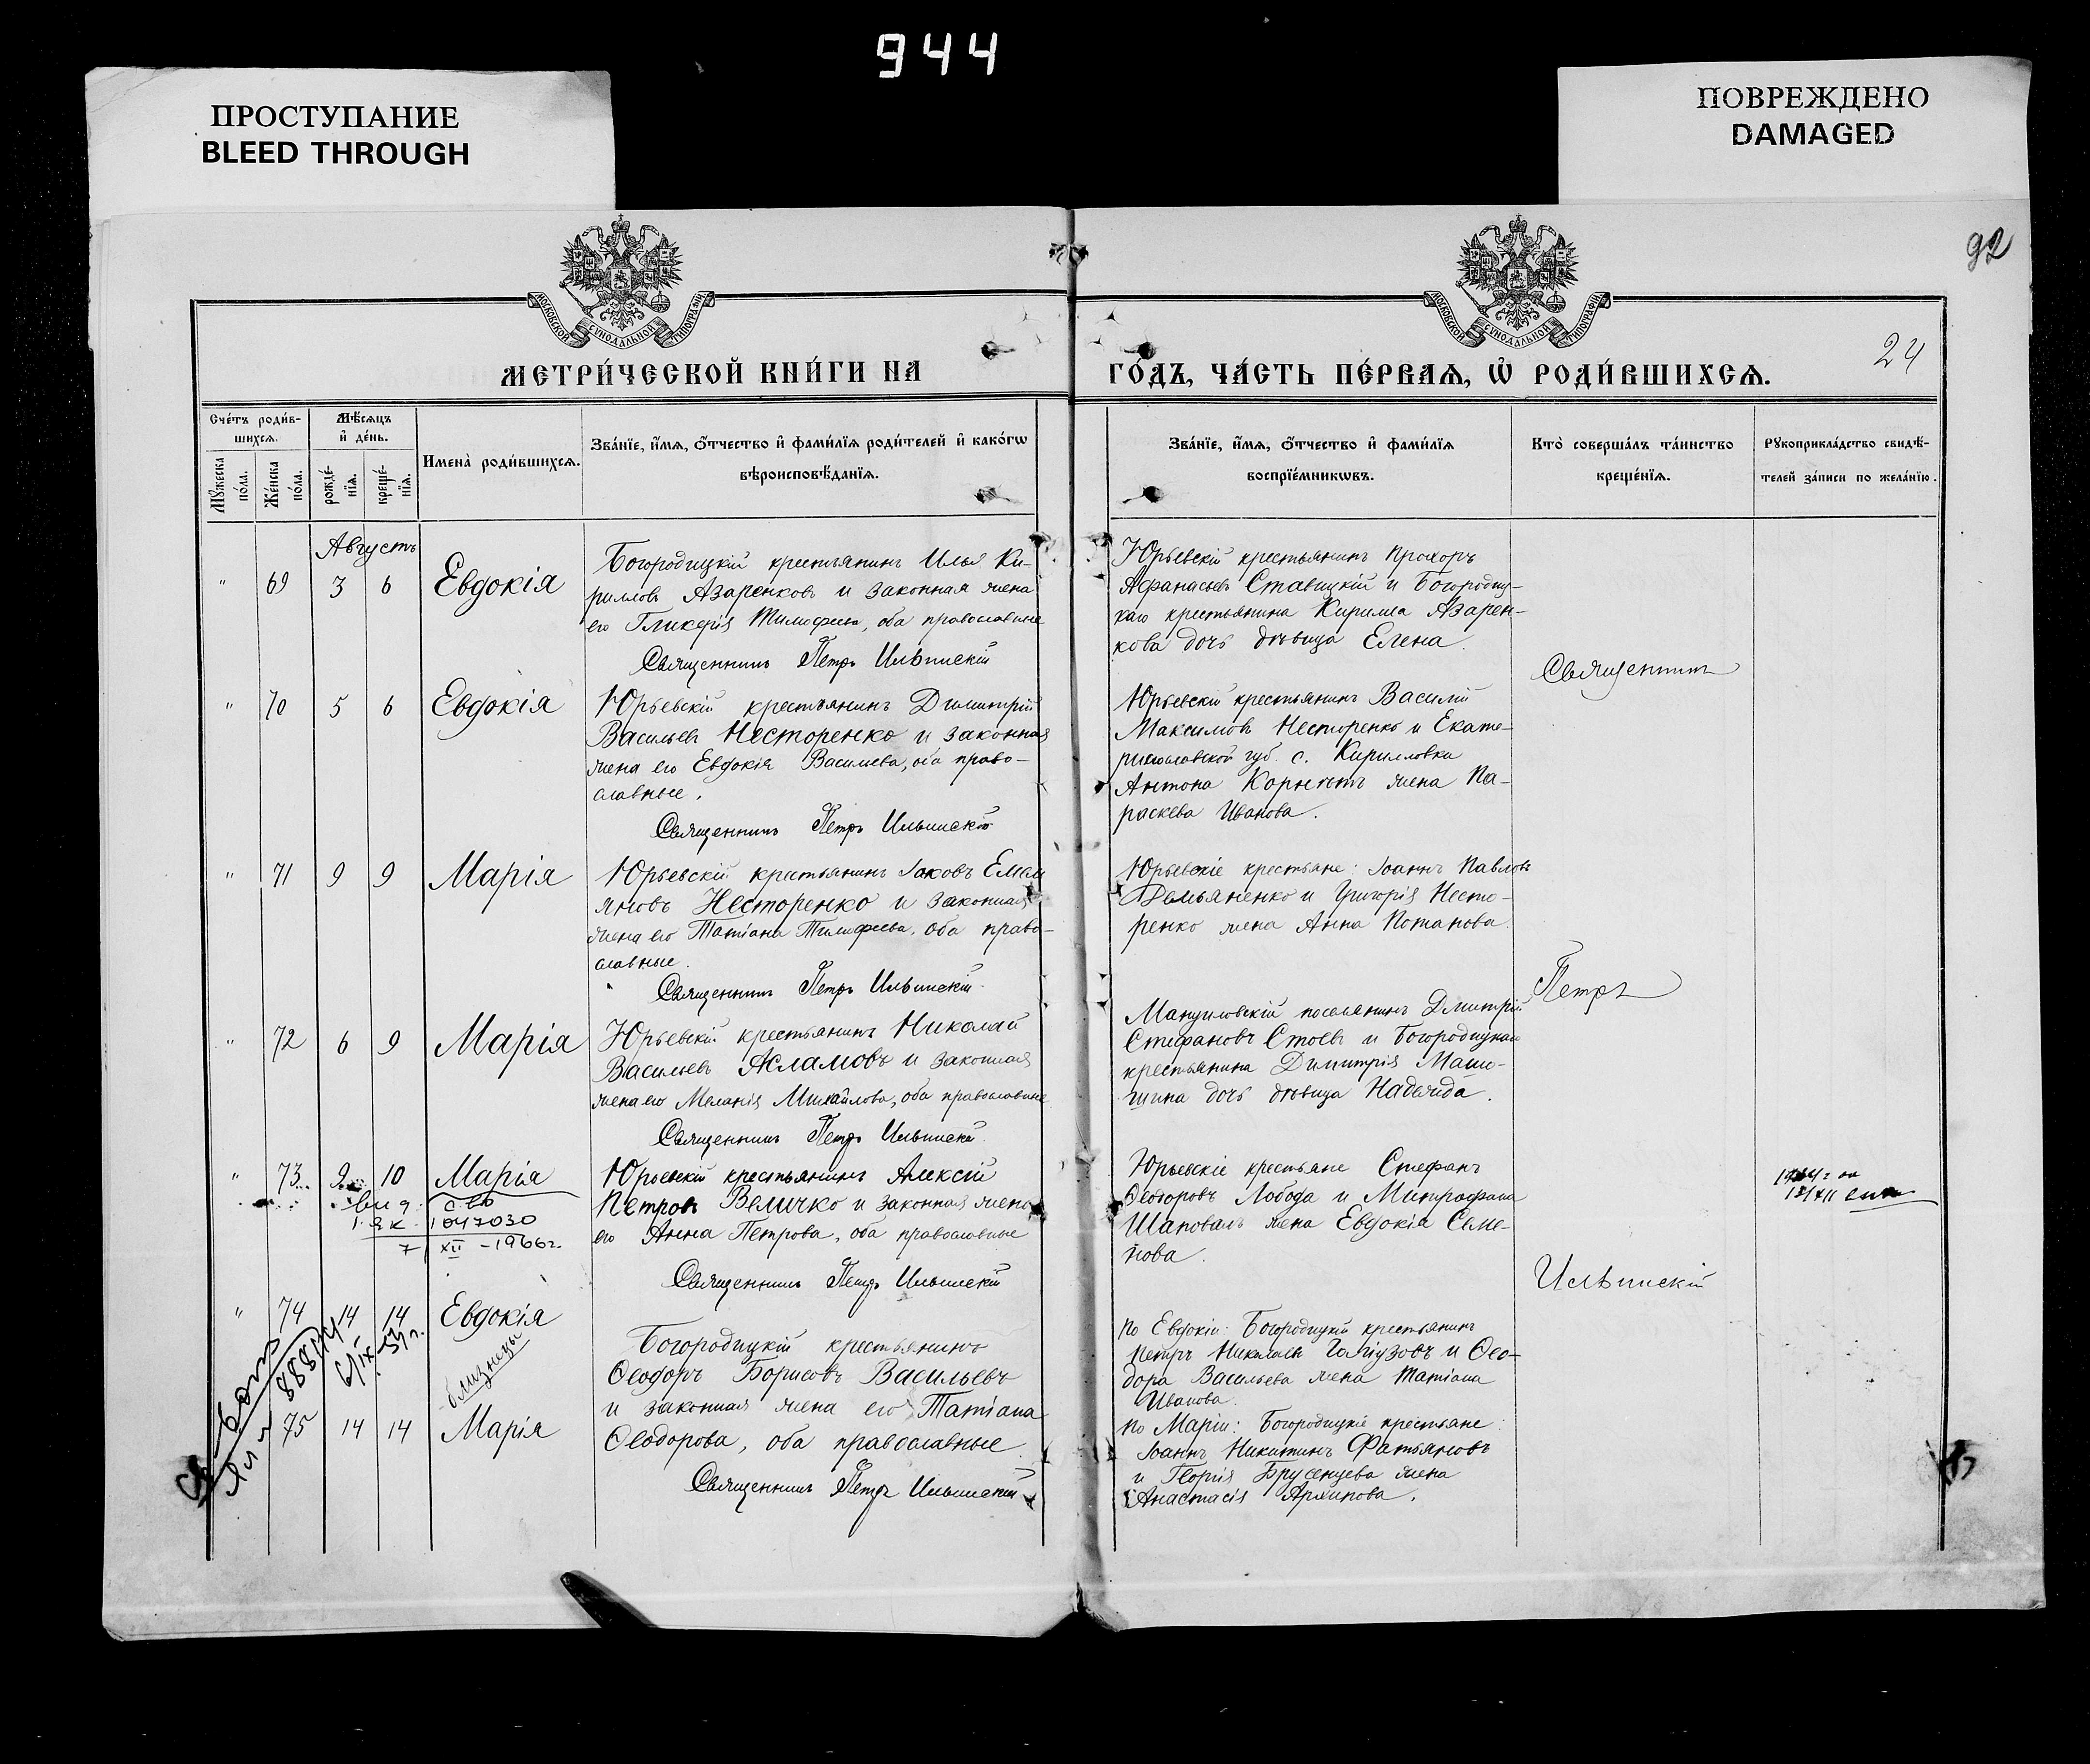 944
ПРОСТУПАНИЕ
BLEED THROUGH
ПОВРЕЖДЕНО
DAMAGED
92
МОСКОВСКОЙ СѴНОДАЛЬНОЙ ТИПОГРАФІИ
МОСКОВСКОЙ СѴНОДАЛЬНОЙ ТИПОГРАФІИ
МЕТРИ́ЧЕСКОЙ КНИ́ГИ НА
ГО́ДЪ, ЧА́СТЬ ПЕ́РВАѦ, Ѡ҆ РОДИ́ВШИХСѦ.
24
Сче́тъ роди́в-
шихсѧ.
Мѣ́сѧцъ
и҆ де́нь.
Мꙋ́жеска
по́ла.
Же́нска
по́ла.
рожде́-
нїѧ.
креще́-
нїѧ.
Имена̀ роди́вшихсѧ.
Зва́нїе, и҆́мѧ, ѻ҆́тчество и҆ фами́лїѧ роди́телей и҆ како́гѡ
вѣроисповѣ́данїѧ.
Зва́нїе, и҆́мѧ, ѻ҆́тчество и҆ фами́лїѧ
воспрїе́мникѡвъ.
Кто̀ соверша́лъ та́инство
креще́нїѧ.
Рꙋкоприкла́дство свидѣ́-
телей за́писи по жела́нїю.
Августъ
" 69 3 6 Евдокія
Богородицкій крестьянинъ Илья Ки-
рилловъ Азаренковъ и законная жена
его Гликерія Тимофеева, оба православные
Священникъ Петръ Ильинскій
Юрьевскій крестьянинъ Прохоръ
Афанасьевъ Ставицкій и Богородиц-
каго крестьянина Кирилла Азарен-
кова дочь дѣвица Елена.
Священникъ
" 70 5 6 Евдокія
Юрьевскій крестьянинъ Димитрій
Васильевъ Несторенко и законная
жена его Евдокія Васильева, оба право-
славные.
Священникъ Петръ Ильинскій
Юрьевскій крестьянинъ Василій
Максимовъ Несторенко и Екате-
ринославской губ. с. Кирилловки
Антона жена Па-
раскева Иванова.
" 71 9 9 Марія
Юрьевскій крестьянинъ Іаковъ Емель
яновъ Несторенко и законная
жена его Татіана Тимофеева, оба право-
славные.
Священникъ Петръ Ильинскій
Юрьевскіе крестьяне: Іоаннъ Павловъ
Демьяненко и Григорія Несто-
ренко жена Анна Потапова.
Петръ
" 72 6 9 Марія
Юрьевскій крестьянинъ Николай
Васильевъ Асламовъ и законная
жена его Меланія Михайлова, оба православные
Священникъ Петръ Ильинскій
Мануиловскій поселянинъ Дмитрій
Стефановъ Стоевъ и Богородицкаго
крестьянина Димитрія Маши-
щина дочь дѣвица Надежда.
" 73 9 10 Марія
Юрьевскій крестьянинъ Алексій
Петровъ Величко и законная жена
его Анна Петрова, оба православные
Священникъ Петръ Ильинскій
Юрьевскіе крестьяне Стефанъ
Ѳеодоровъ Лобода и Митрофана
Шаповалъ жена Евдокія Семе-
нова.
с-во
1047030
7/XII - 1966г.
Ильинскій
" 74 14 14 Евдокія
близнецы
75 14 14 Марія
Богородицкій крестьянинъ
Ѳеодоръ Борисовъ Васильевъ
и законная жена его Татіана
Ѳеодорова, оба православные.
Священникъ Петръ Ильинскій
По Евдокіи: Богородицкій крестьянинъ
Петръ Николаевъ и Ѳео-
дора Васильева жена Татіана
Иванова.
По Маріи: Богородицкіе крестьяне:
Іоаннъ Никитинъ Фатьяновъ
и Георгія Брусенцева жена
Анастасія Архипова.